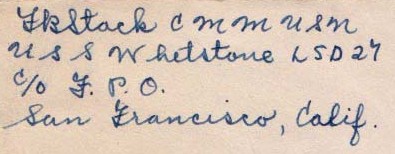 FkStock C M M U S N
U S S Whetstone L S D 27
C/o F. P. O.
San Francisco, Calif.